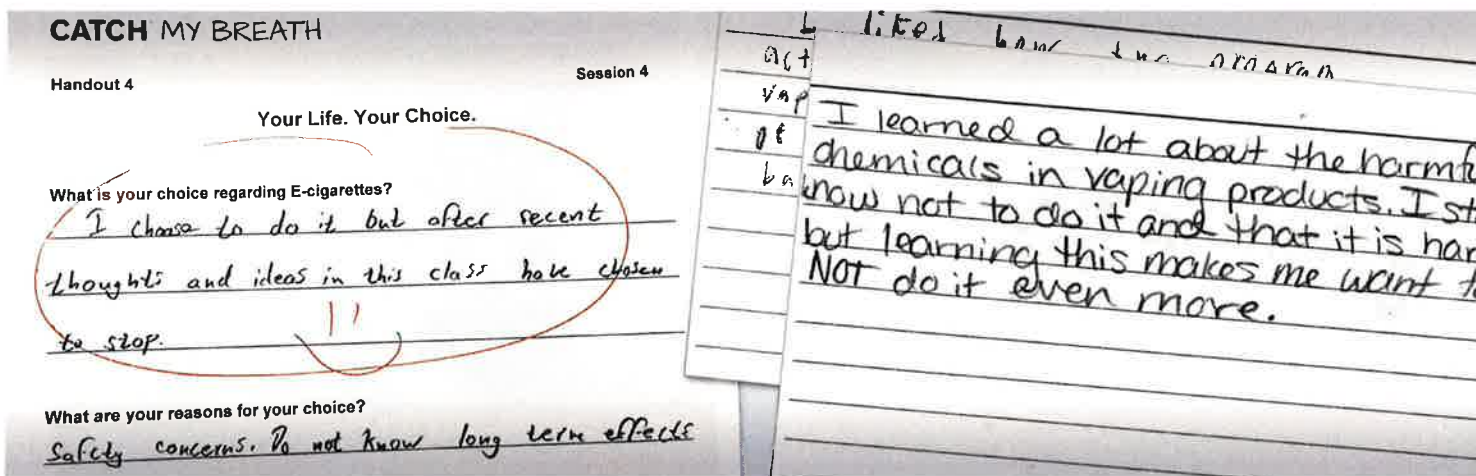 CATCH MY BREATH
Handout 4
Session 4
Your Life. Your Choice.
What is your choice regarding E-cigarettes?
I choose to do it but after recent
thoughts and ideas in this class have chosen
to stop.
What are your reasons for your choice?
Safety concerns. Do not know long term effects
I liked how the program
act
vap
of
ba
I learned a lot about the harmfu
chemicals in vaping products. I st
know not to do it and that it is har
but learning this makes me want t
NOT do it even more.